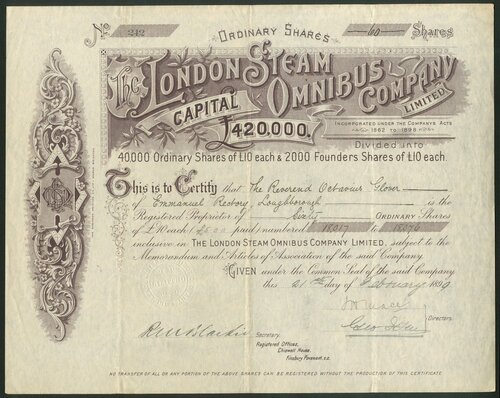 No 242 ORDINARY SHARES 60 Shares
The LONDON STEAM OMNIBUS COMPANY LIMITED.
CAPITAL £420,000.
INCORPORATED UNDER THE COMPANYS ACTS
1862 TO 1898.
Divided into
40000 Ordinary Shares of £10 each & 2000 Founders Shares of £10 each.
This is to Certify that The Reverend Octavius Glover
of Emmanuel Rectory Loughborough is the
Registered Proprietor of Sixty ORDINARY Shares
of £10 each ( paid) numbered 18317 to 18376
inclusive in THE LONDON STEAM OMNIBUS COMPANY LIMITED, subject to the
Memorandum and Articles of Association of the said Company.
GIVEN under the Common Seal of the said Company
this 21st day of February 1899
Directors.
Secretary.
Registered Offices,
Chiswell House,
Finsbury Pavement, E.C.
NO TRANSFER OF ALL OR ANY PORTION OF THE ABOVE SHARES CAN BE REGISTERED WITHOUT THE PRODUCTION OF THIS CERTIFICATE.